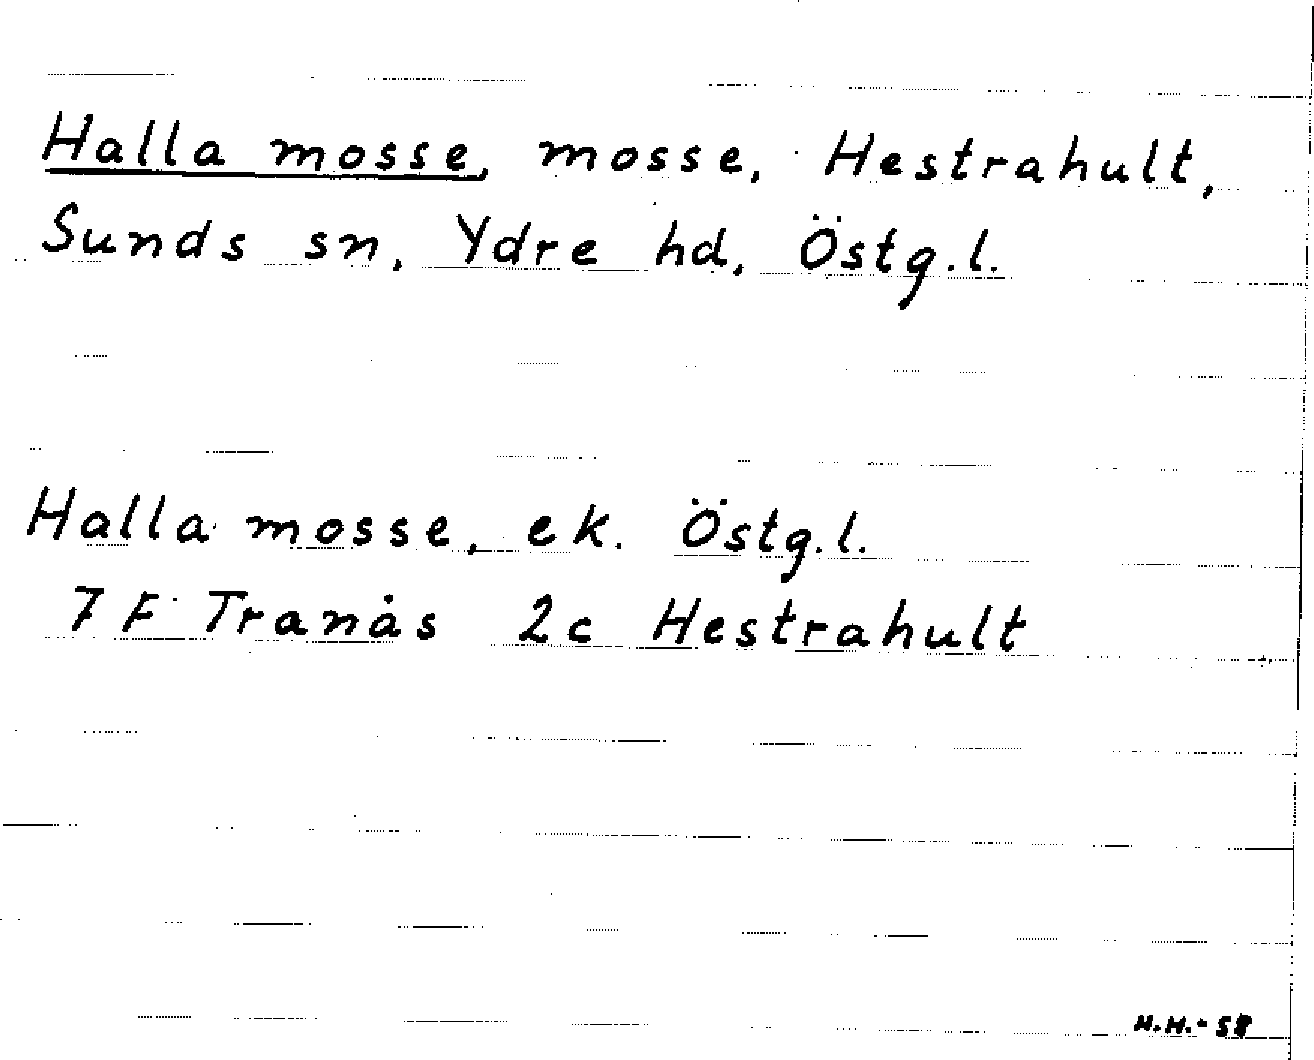 Halla mosse, mosse, Hestrahult,
Sunds sn, Ydre hd, Östg.l.
Halla mosse, ek. Östg.l.
7 F Tranås 2c Hestrahult
H.H.-58